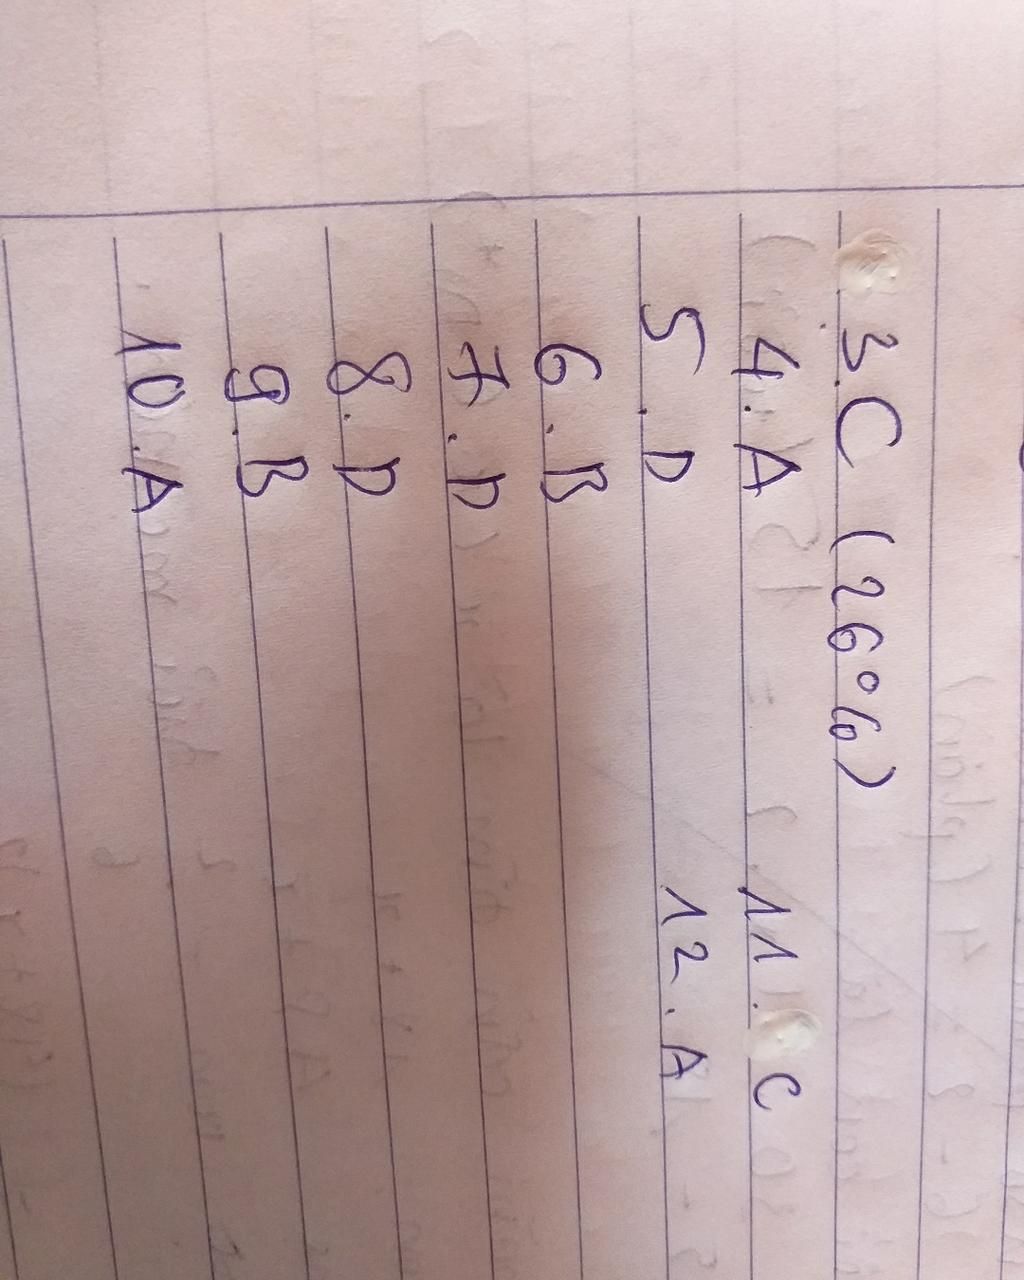 3.C (26%)
4.A
5.D
6.B
7.D
8.D
9.B
10.A
11.C
12.A